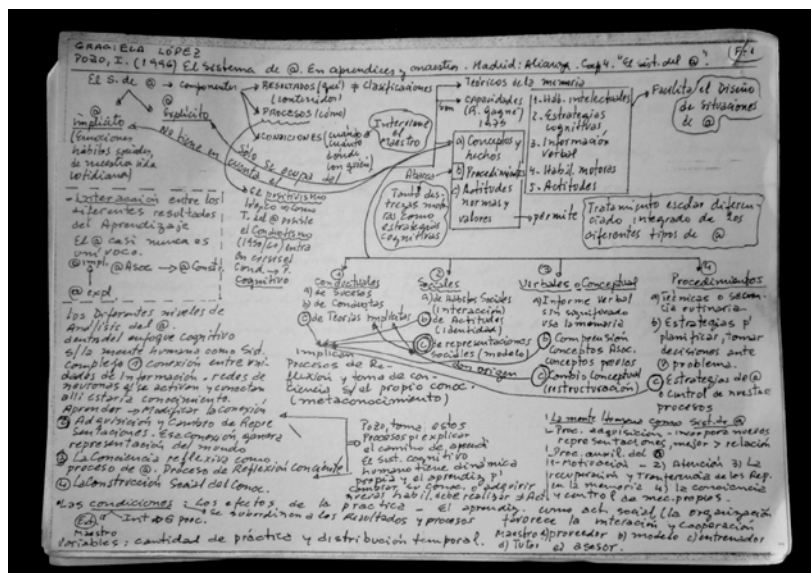 GRACIELA LÓPEZ
POZO, I. (1996) El Sistema de @. En aprendices y maestros. Madrid: Alianza. Cap 4. "El sist. del @".
El S. de @ → Componentes
RESULTADOS (qué) → clasificaciones
(contenidos)
PROCESOS (cómo)
CONDICIONES (cuándo
cuánto
dónde
con quién)
@
implícito
(Emociones
hábitos sociales,
de nuestra vida
cotidiana)
@
Explícito
No tiene en cuenta el
Sólo se ocupa del
Interviene
el
Maestro
Teóricos de la memoria
capacidades
(R. Gagné)
1975
1. Hab. intelectuales
2. Estrategias
cognitivas
3. Información
verbal
4. Habil motoras
5. Actitudes
Facilita el Diseño
de situaciones
de @
a) Conceptos y
hechos
b) Procedimientos
c) Actitudes
normas y
valores
Abarca
Tanto des-
trezas moto-
ras como
estrategias
cognitivas
permite
Tratamiento escolar diferen-
ciado integrado de los
diferentes tipos de @
El positivismo
lógico
T. del @ posible
el Conductismo
(1950/60) entra
en crisis el
Cond → P.
Cognitivo
- Interacción entre los
diferentes resultados
del Aprendizaje
El @ casi nunca es
unívoco.
@ impl.
@ Asoc → @ Constr.
@ expl
①
Conductuales
a) de Sucesos
b) de Conductas
c) de Teorías Implícitas
②
Sociales
a) de Hábitos Sociales
(interacción)
b) de Actitudes
(identidad)
c) de representaciones
sociales (modelo)
③
Verbales o Conceptual
a) Informe verbal
sin significado
usa la memoria
b) Comprensión
conceptos Asoc.
conceptos previos
c) Cambio Conceptual
(restructuración)
④
Procedimientos
a) Técnicas o secuen-
cia rutinaria.
b) Estrategias p'
planificar, tomar
decisiones ante
problema.
c) Estrategias de @
control de nuestros
procesos
dan origen
Implican
Procesos de Re-
flexión y toma de con-
ciencia s/ el propio conoc.
(metaconocimiento)
Los Diferentes niveles de
Análisis del @.
dentro del enfoque cognitivo
s/ la mente humana como Sist.
Complejo ① conexión entre uni-
dades de Información. redes de
neuronas q' se activan y conectan
allí estaría conocimiento.
Aprender → Modificar la conexión
② Adquisición y Cambio de Repre
sentaciones. Esa conexión, genera
representación del mundo
③ La Conciencia reflexiva como
proceso de @. Proceso de Reflexión Consciente
④ La Construcción Social del Conoc.
Pozo, toma estos
Procesos p' explicar
el camino de aprendi
El sist. cognitivo
humano tiene dinámica
propia y el aprendiz p'
cambiar su conoc. o adquirir
nuevas habil. debe realizar
La mente Humana como sist. de @
Proc. adquisición - incorpora nuevas
representaciones, mejor y relación
Proc. auxil. del @
1º - Motivación - 2) Atención 3) La
recuperación y Tranferencia de las Rep.
en la memoria 4) la conciencia
y control de mec. propios.
• Las condiciones: Los efectos de la practica - El aprendiz. como act social (la organización
se subordinan a los Resultados y procesos favorece la interación y cooperación
Maestro
Maestro a) proveedor b) modelo c) entrenador
Variables: cantidad de práctica y distribución temporal. d) Tutor e) asesor.